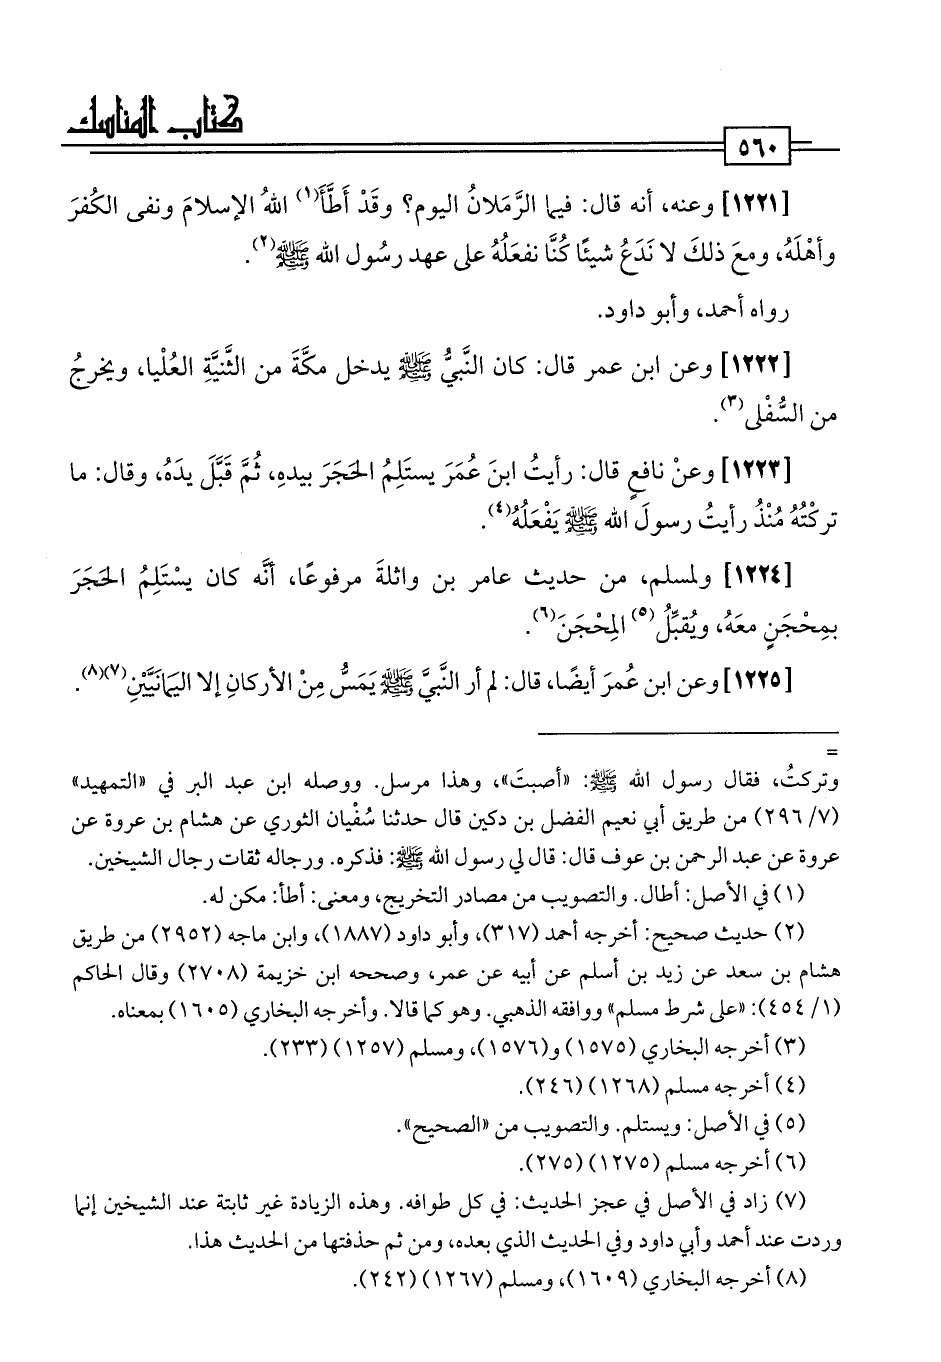 كتاب المناسك
٥٦٠
[١٢٢١] وعنه، أنه قال: فيما الرَّمَلانُ اليوم؟ وقَدْ أَطَّأَ(١) اللهُ الإسلامَ ونفى الكُفرَ
وأهْلَهُ، ومعَ ذلكَ لا نَدَعُ شيئًا كُنَّا نفعَلُهُ على عهد رسُول الله ﷺ(٢).
رواه أحمد، وأبو داود.
[١٢٢٢] وعن ابن عمر قال: كان النَّبيُّ ﷺ يدخل مكَّةَ من الثَّنيَّةِ العُلْيا، ويخرجُ
من السُّفْلى(٣).
[١٢٢٣] وعنْ نافعٍ قال: رأيتُ ابنَ عُمَرَ يستَلِمُ الحَجَرَ بيدهِ، ثُمَّ قَبَّلَ يدَهُ، وقال: ما
تركْتُهُ مُنْذُ رأيتُ رسولَ الله ﷺ يَفْعَلُهُ(٤).
[١٢٢٤] ولمسلم، من حديث عامر بن واثلةَ مرفوعًا، أنَّه كان يسْتَلِمُ الحَجَرَ
بمِحْجَنٍ معَهُ، ويُقبِّلُ(٥) المِحْجَنَ(٦).
[١٢٢٥] وعن ابن عُمرَ أيضًا، قال: لم أر النَّبيَّ ﷺ يَمَسُّ مِنْ الأركانِ إلا اليمَانَيَّيْنِ(٧)(٨).
=
وتركتُ، فقال رسول الله ﷺ: «أصبتَ»، وهذا مرسل. ووصله ابن عبد البر في «التمهيد»
(٧/ ٢٩٦) من طريق أبي نعيم الفضل بن دكين قال حدثنا سُفْيان الثوري عن هشام بن عروة عن
عروة عن عبد الرحمن بن عوف قال: قال لي رسول الله ﷺ: فذكره. ورجاله ثقات رجال الشيخين.
(١) في الأصل: أطال. والتصويب من مصادر التخريج، ومعنى: أطأ: مكن له.
(٢) حديث صحيح: أخرجه أحمد (٣١٧)، وأبو داود (١٨٨٧)، وابن ماجه (٢٩٥٢) من طريق
هشام بن سعد عن زيد بن أسلم عن أبيه عن عمر، وصححه ابن خزيمة (٢٧٠٨) وقال الحاكم
(١/ ٤٥٤): «على شرط مسلم» ووافقه الذهبي. وهو كما قالا. وأخرجه البخاري (١٦٠٥) بمعناه.
(٣) أخرجه البخاري (١٥٧٥) و(١٥٧٦)، ومسلم (١٢٥٧) (٢٣٣).
(٤) أخرجه مسلم (١٢٦٨) (٢٤٦).
(٥) في الأصل: ويستلم. والتصويب من «الصحيح».
(٦) أخرجه مسلم (١٢٧٥) (٢٧٥).
(٧) زاد في الأصل في عجز الحديث: في كل طوافه. وهذه الزيادة غير ثابتة عند الشيخين إنما
وردت عند أحمد وأبي داود وفي الحديث الذي بعده، ومن ثم حذفتها من الحديث هذا.
(٨) أخرجه البخاري (١٦٠٩)، ومسلم (١٢٦٧) (٢٤٢).